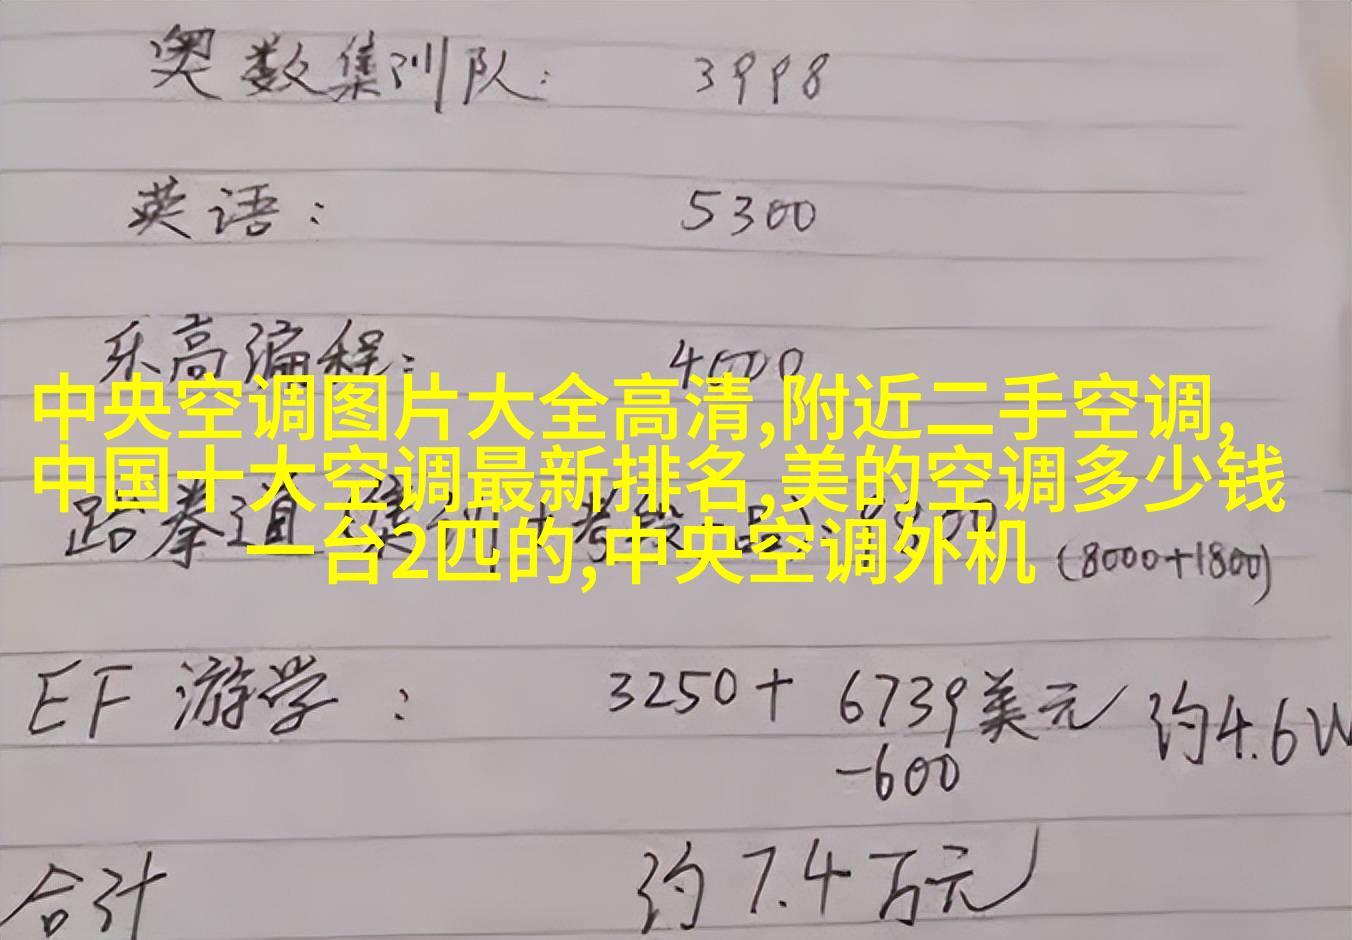 奥数集训队: 3998
英语: 5300
乐高编程: 4000
中央空调图片大全高清,附近二手空调,
中国十大空调最新排名,美的空调多少钱
跆拳道
一台2匹的,中央空调外机
(8000+1800)
EF 游学: 3250+ 6739美元 约4.6W
-600
合计 约7.4万元